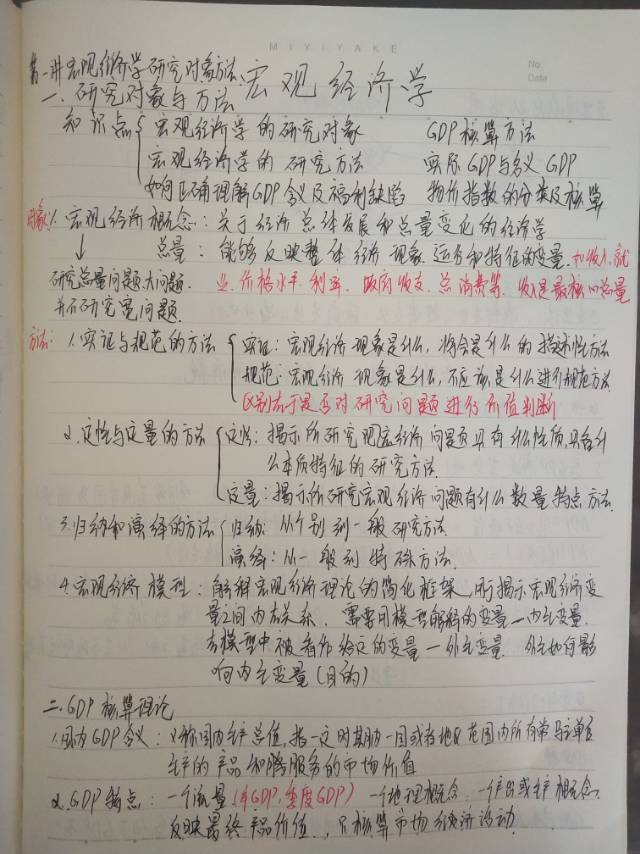 MIYIYAKE
No.
Date
宏观经济学
第一讲宏观经济学研究对象方法
一.研究对象与方法
知识点 宏观经济学的研究对象 GDP核算方法
宏观经济学的研究方法 实际GDP与名义GDP
如何正确理解GDP含义及福利缺陷 物价指数的分类及核算
对象 1.宏观经济概念:关于经济总体发展和总量变化的经济学
↓ 总量:能够反映整体经济现象运行和特征的变量.如收入,就
研究总量问题,大问题. 业,价格水平,利率,政府收支,总消费等,收入是最核心总量
并不研究层问题.
方法: 1.实证与规范的方法 实证:宏观经济现象是什么,将会是什么的描述性方法
规范:宏观经济现象是什么,不应该是什么进行规范方法
区别在于是否对研究问题进行价值判断
2.定性与定量的方法 定性:揭示所研究宏观经济问题具有什么性质,具备什
么本质特征的研究方法.
定量:揭示所研究宏观经济问题有什么数量特点方法.
3.归纳和演绎的方法 归纳:从个别到一般研究方法
演绎:从一般到特殊方法.
4.宏观经济模型:解释宏观经济理论的简化框架,用揭示宏观经济变
量之间内在关系.需要用模型解释的变量—内生变量.
在模型中被看作给定的变量—外生变量.外生如何影
响内生变量(目的)
二.GDP核算理论
1.国内GDP含义:又称国内生产总值,指一定时期内一国或者地区范围内所有常驻单位
生产的产品和服务的市场价值
2.GDP特点:一个流量(年GDP,季度GDP) 一个地理概念,一个产出或生产概念.
反映最终产品价值,只核算市场经济活动.